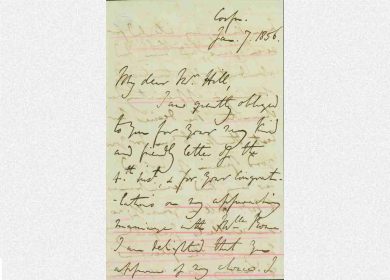 Corfu.
Jan. 7. 1856.
My dear Mr Hill,
I am greatly obliged
to you for your very kind
and friendly letter of the
4th inst, & for your congratu-
-lations on my approaching
marriage with Mlle
I am delighted that you
approve of my choice. I